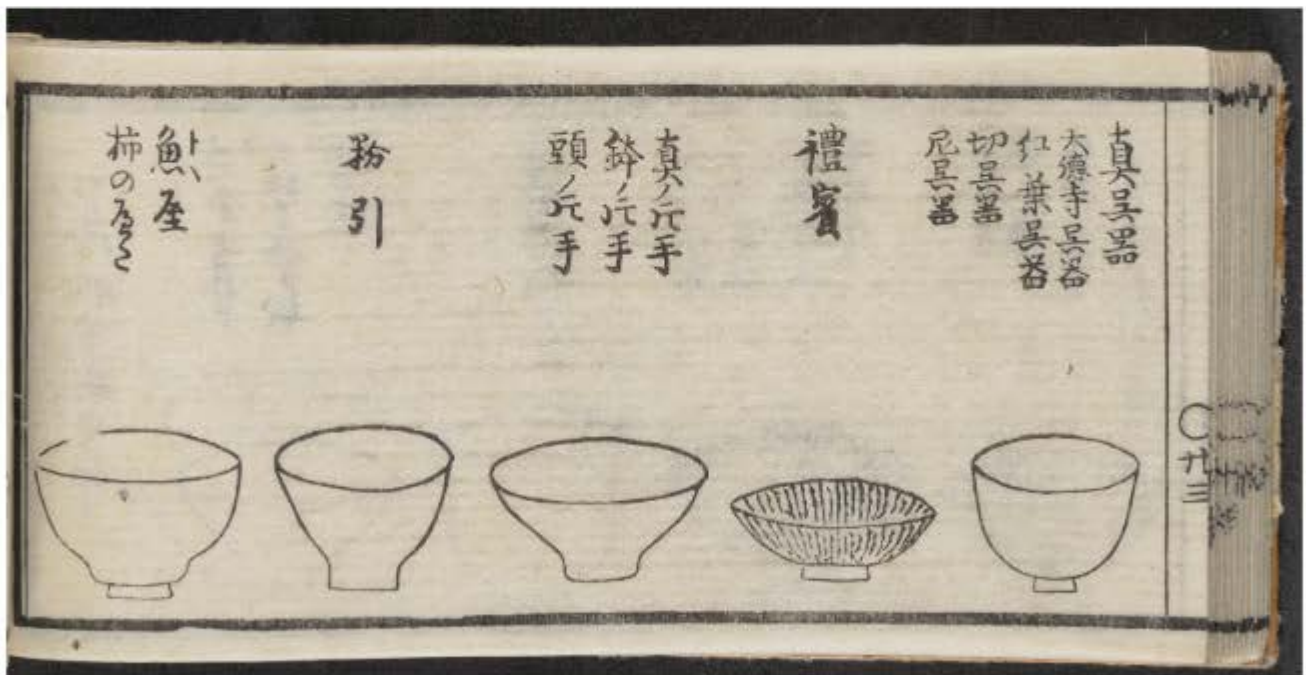 〇廿三
真呉器
大德寺呉器
紅葉呉器
切呉器
尼呉器
禮賓
真ノ手
鉢ノ手
頭ノ手
粉引
魚屋
柿の